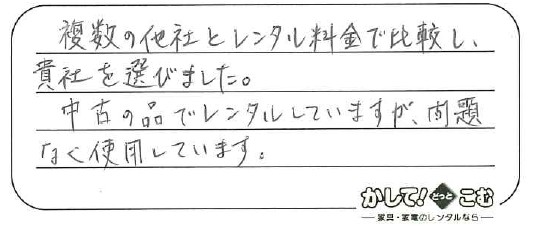 複数の他社とレンタル料金で比較し、
貴社を選びました。
中古の品でレンタルしていますが、問題
なく使用しています。
かして!どっとこむ
家具・家電のレンタルなら